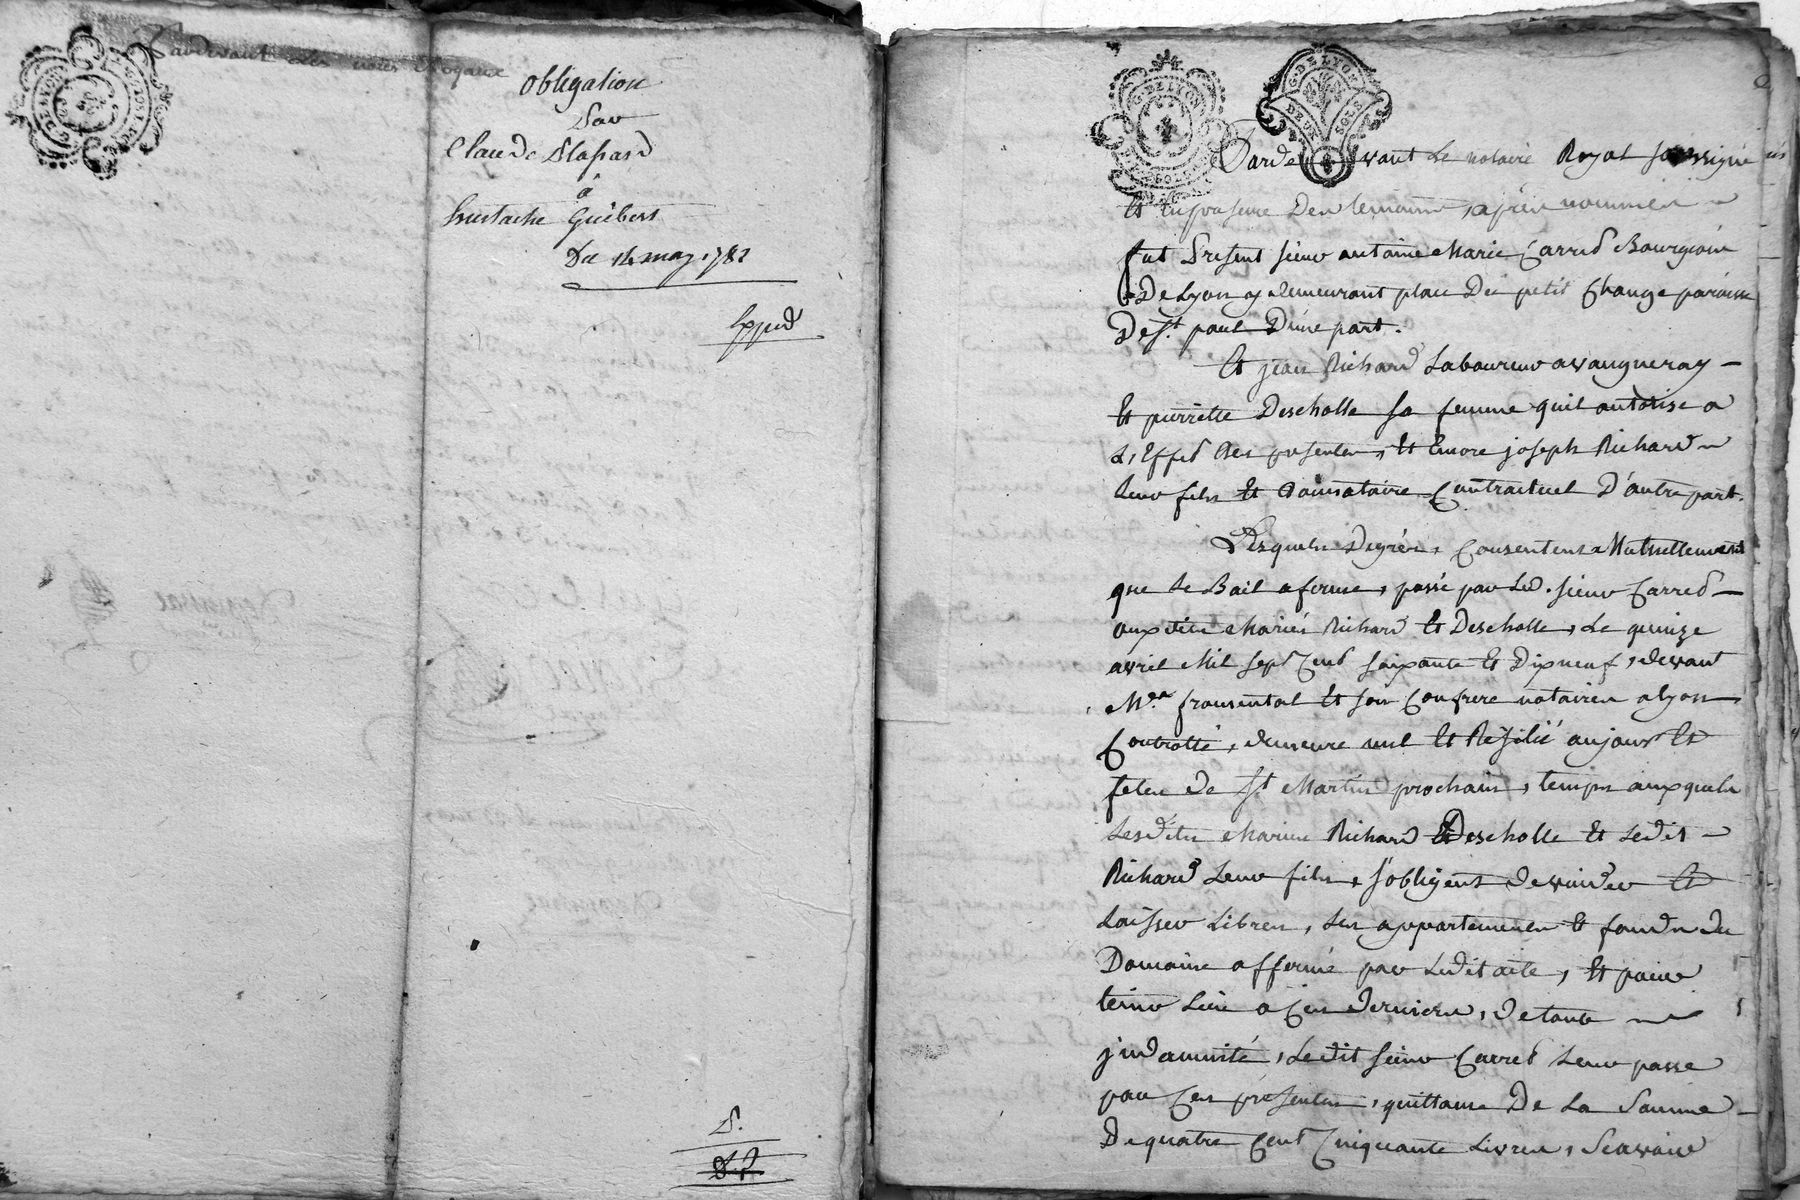 Pardevant les notaires Royaux
obligation
Par
Claude Plassard
à
Eustache Guibert
Du 14 may 1782
Exped
G. DE LYON
G. DE LYON
DEUX SOLS
Pardevant Le notaire Royal soussigné
Et En presence Des temoins, après nommés
fut Present sieur antoine Marie Carred Bourgeois
De Lyon y demeurant place Du petit Change paroisse
De St. paul D'une part.
Et jean Richard Laboureur a vaugneray
Et pierrette Descholle sa femme quil autorise a
L'Effet Des presentes, Et Encore joseph Richard
Leur fils Et Donnataire Contractuel D'autre part.
Lesquels Degrés, Consentens Mutuellement
que Le Bail a ferme, passé par Led. sieur Carred
aux dits Mariés Richard Et Descholle, Le quinze
avril Mil sept Cent soixante Et Dixneuf, devant
Me. fromental Et son Confrere notaires a Lyon
Controllé, demeure nul Et Résilié aujour Et
fetes de St Martin prochain, temps auxquels
Lesdits Maries Richard Et Descholle Et Ledit
Richard Leur fils, s'obligent de vuider Et
Laisser Libres, Les appartements Et fonds du
Domaine affermé par Ledit acte, Et pour
tenir Lieu a Ces derniers, de toute
jndamnité, Ledit sieur Carred Leur passe
par Ces présentes, quittance De La Somme
De quatre Cent Cinquante Livres, Scavoir